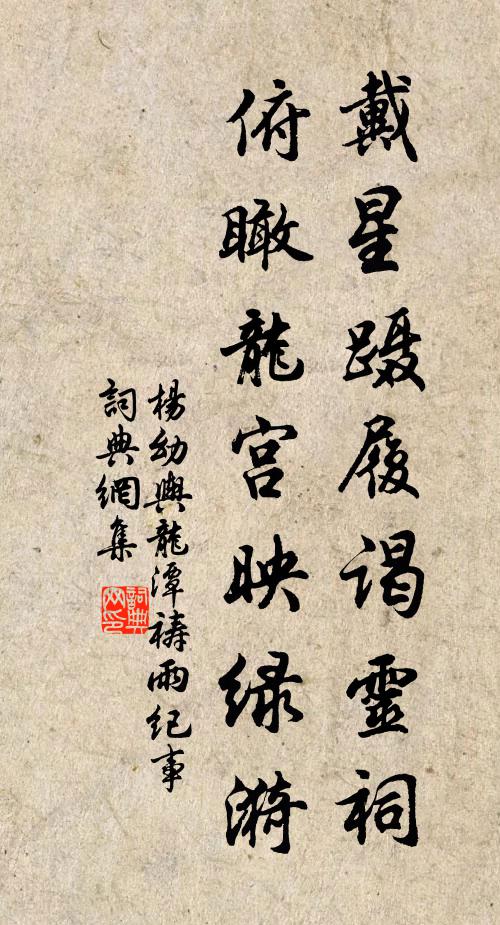 戴星蹑履谒靈祠
俯瞰龍宫映绿漪
楊幼輿龍潭禱雨纪事
詞典網集
詞典网印